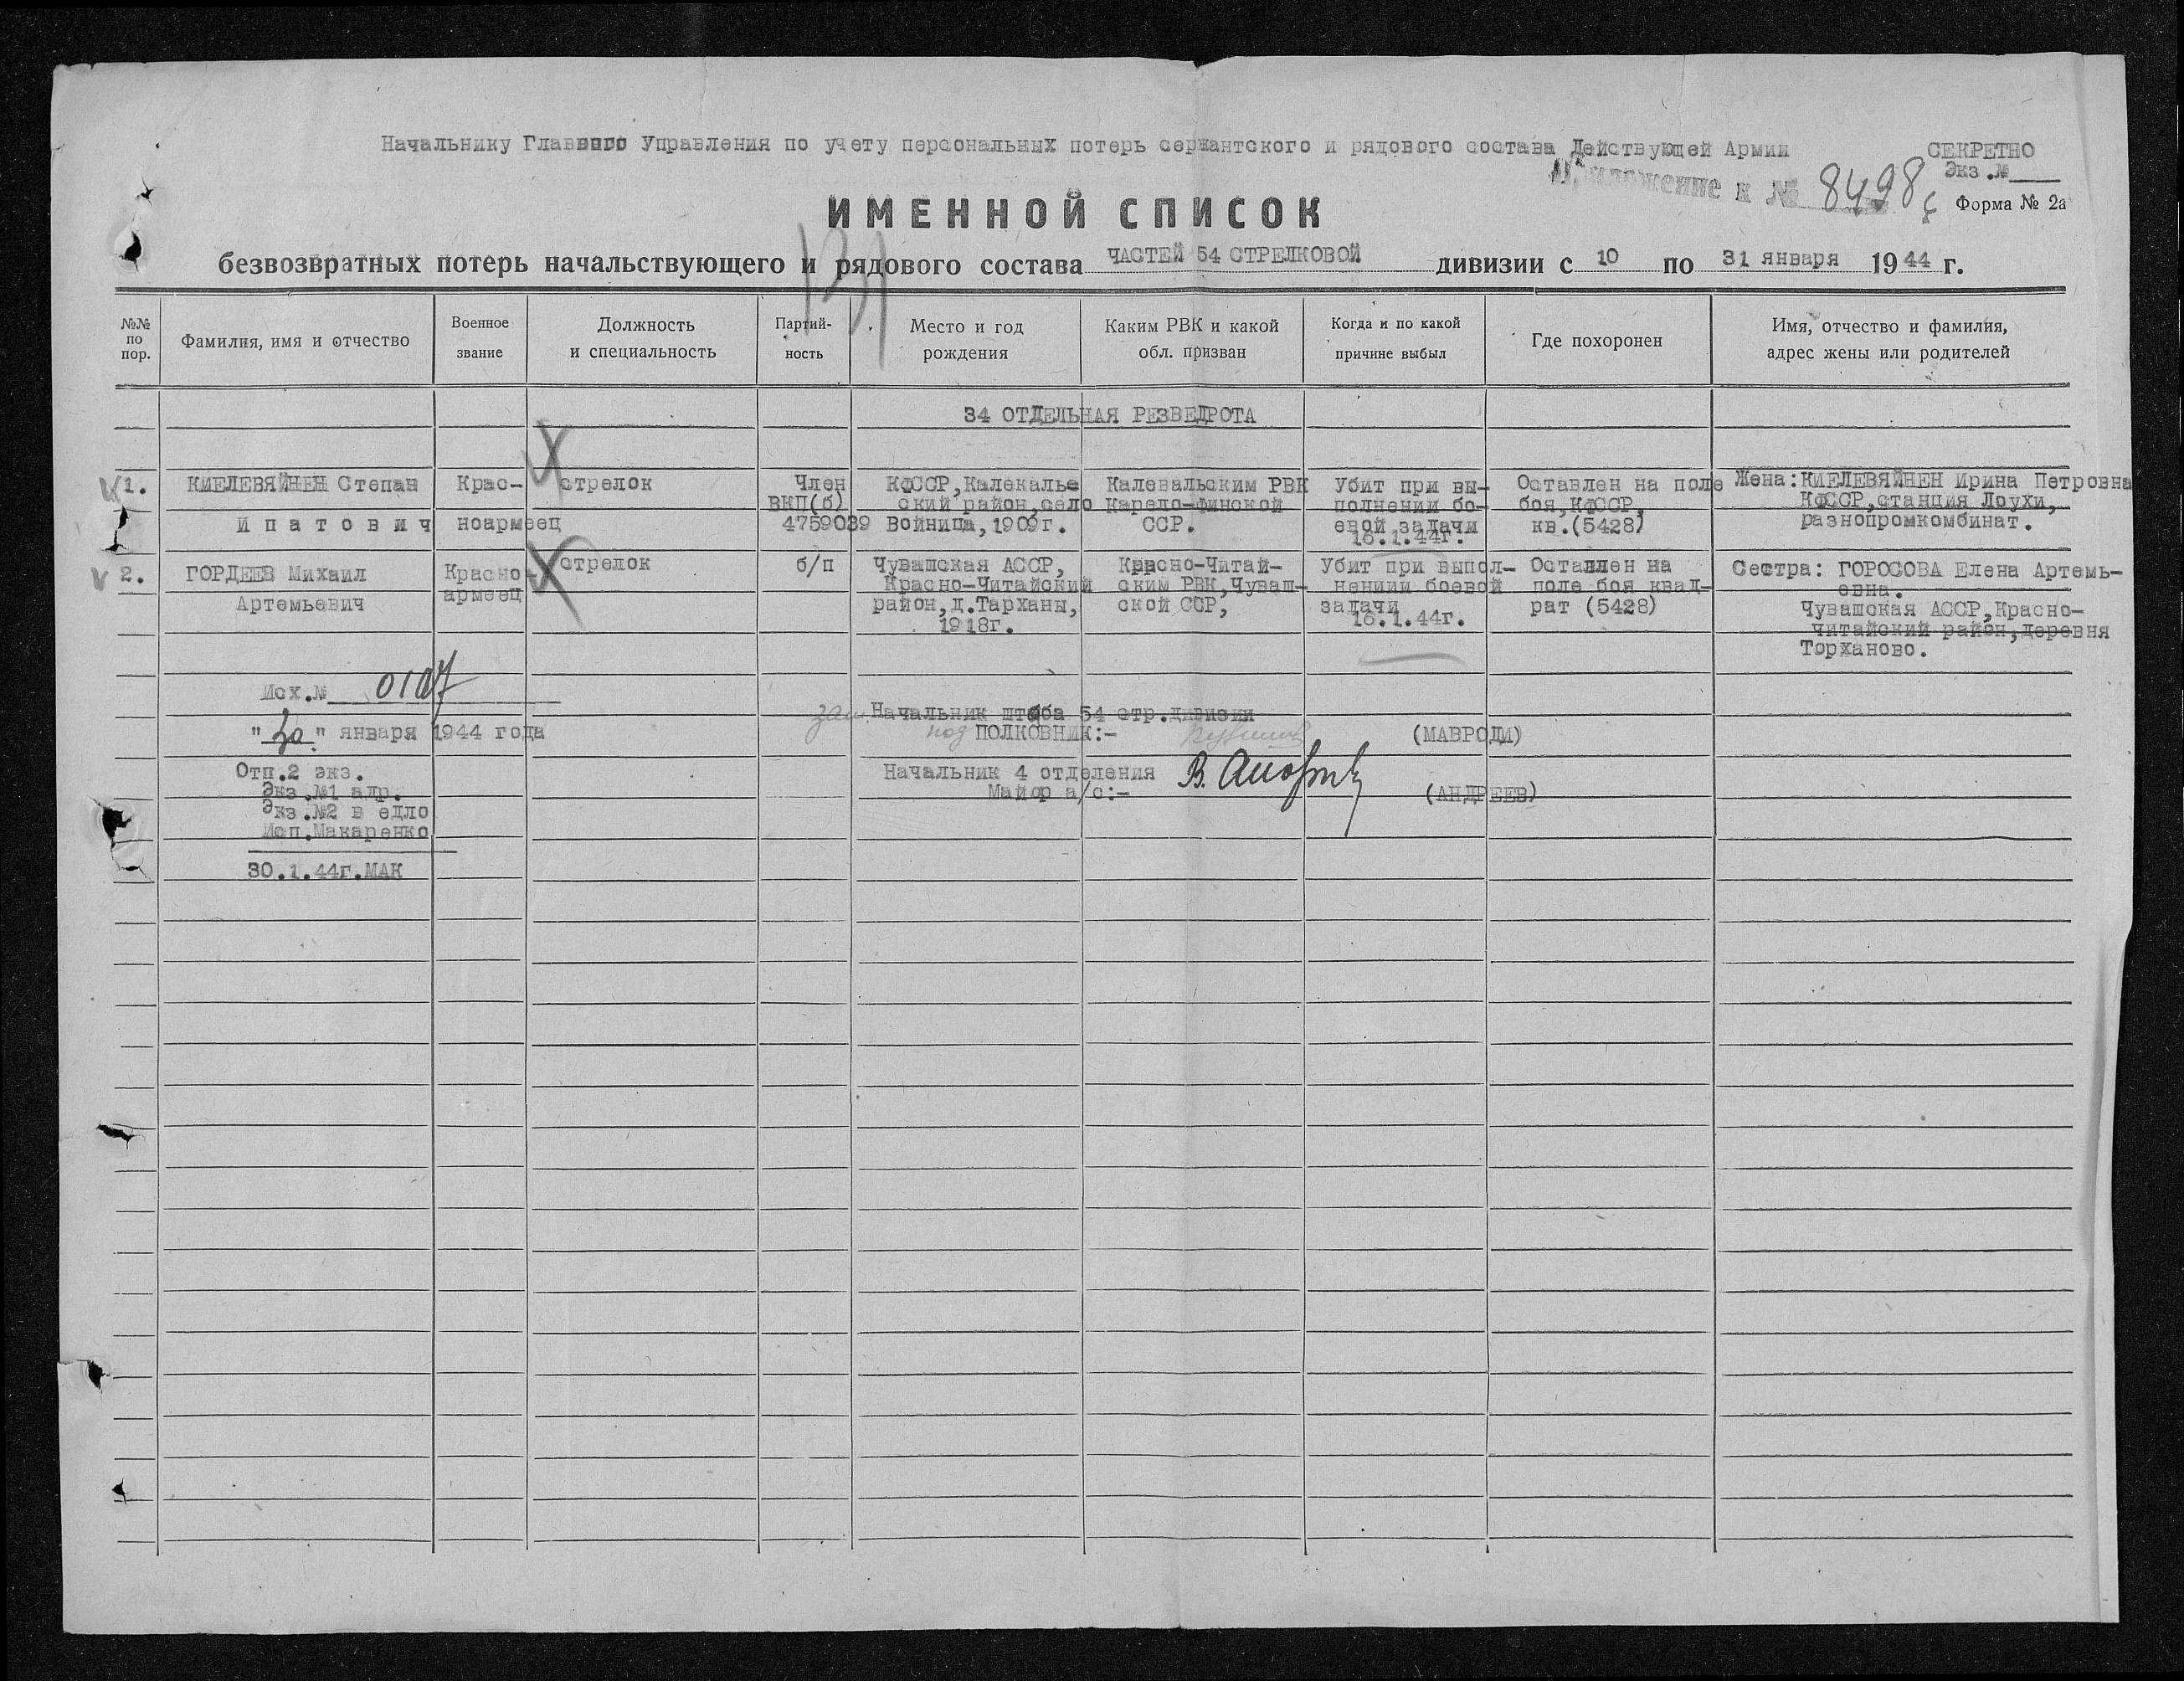 Начальнику Главного Управления по учету персональных потерь сержантского и рядового состава Действующей Армии
СЕКРЕТНО
Экз.№
Приложение к № 8498с
Форма № 2а
ИМЕННОЙ СПИСОК
безвозвратных потерь начальствующего и рядового состава ЧАСТЕЙ 54 СТРЕЛКОВОЙ дивизии с 10 по 31 января 1944 г.
131
№№ по пор.
Фамилия, имя и отчество
Военное звание
Должность и специальность
Партий-ность
Место и год рождения
Каким РВК и какой обл. призван
Когда и по какой причине выбыл
Где похоронен
Имя, отчество и фамилия, адрес жены или родителей
34 ОТДЕЛЬНАЯ РЕЗВЕДРОТА
1.
КИЕЛЕВЯЙНЕН Степан
Ипатович
Крас-
ноармеец
стрелок
Член
ВКП(б)
4759039
КФССР,Калекалье
ский район,село
Войница,1909г.
Калевальским РВК
Карело-финской
ССР.
Убит при вы-
полнении бо-
евой задачи
16.1.44г.
Оставлен на поле
боя,КФССР,
кв.(5428)
Жена:КИЕЛЕВЯЙНЕН Ирина Петровна
КФССР,станция Лоухи,
разнопромкомбинат.
2.
ГОРДЕЕВ Михаил
Артемьевич
Красно-
армеец
стрелок
б/п
Чувашская АССР,
Красно-Читайский
район,д.Тарханы,
1918г.
Красно-Читай-
ским РВК,Чуваш-
ской ССР,
Убит при выпол-
нениии боевой
задачи
16.1.44г.
Оставлен на
поле боя квад-
рат (5428)
Сестра: ГОРОСОВА Елена Артемь-
евна.
Чувашская АССР,Красно-
читайский район,деревня
Торханово.
Исх.№ 0107
"30" января 1944 года
Отп.2 экз.
Экз.№1 адр.
Экз.№2 в едло
Исп.Макаренко
30.1.44г.МАК
зам. Начальник штаба 54 стр.дивизии
под ПОЛКОВНИК:- (МАВРОДИ)
Начальник 4 отделения
Майор а/с:- (АНДРЕЕВ)